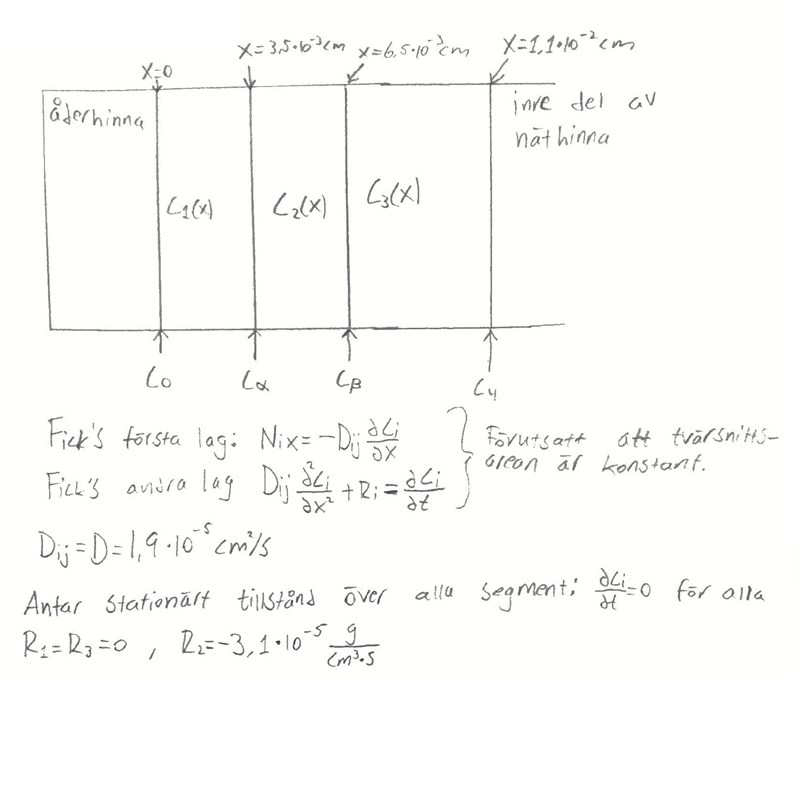 x=0
x=3,5·10⁻³cm
x=6,5·10⁻³cm
x=1,1·10⁻²cm
åderhinna
inre del av
näthinna
C₁(x)
C₂(x)
C₃(x)
C₀
Cα
Cβ
C₄
Fick's första lag: Nix=-Dij ∂Ci/∂x
Fick's andra lag Dij ∂²Ci/∂x² + Ri = ∂Ci/∂t
Förutsatt att tvärsnitts-
arean är konstant.
Dij=D=1,9·10⁻⁵ cm²/s
Antar stationärt tillstånd över alla segment: ∂Ci/∂t=0 för alla
R₁=R₃=0, R₂=-3,1·10⁻⁵ g/cm³·s